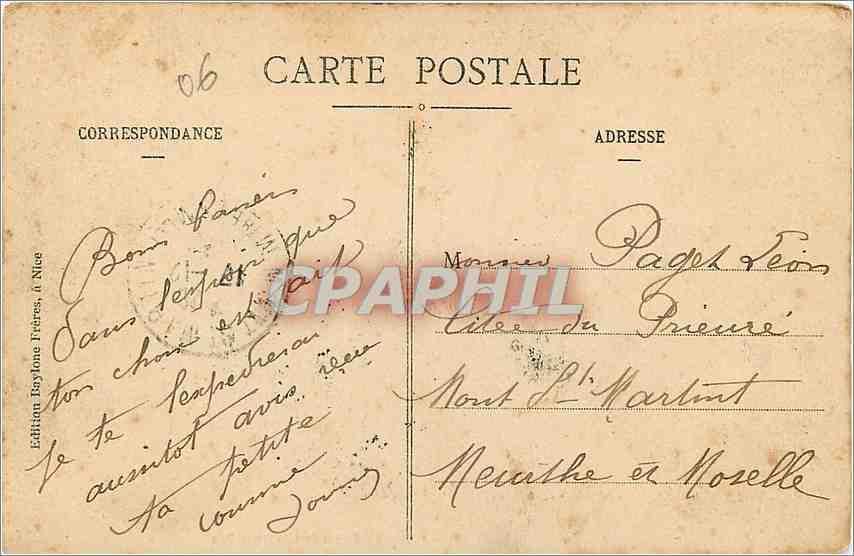 06
CARTE POSTALE
CORRESPONDANCE
ADRESSE
Bons baisers
Dans l'espoir que
ton choix est fait
je te l'expedierai
aussitot avis recu
ta petite
cousine
Edition Baylone Frères, à Nice
Monsieur Paget Léon
Citée du Prieuré
Mont St Martint
Meurthe et Moselle
CPAPHIL